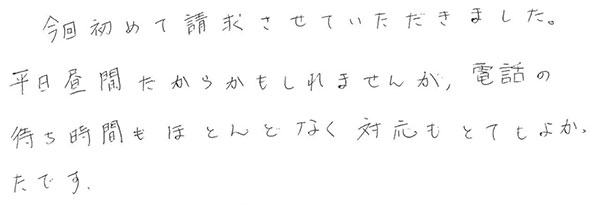 今回初めて請求させていただきました。
平日昼間だからかもしれませんが、電話の
待ち時間もほとんどなく対応もとてもよかっ
たです。